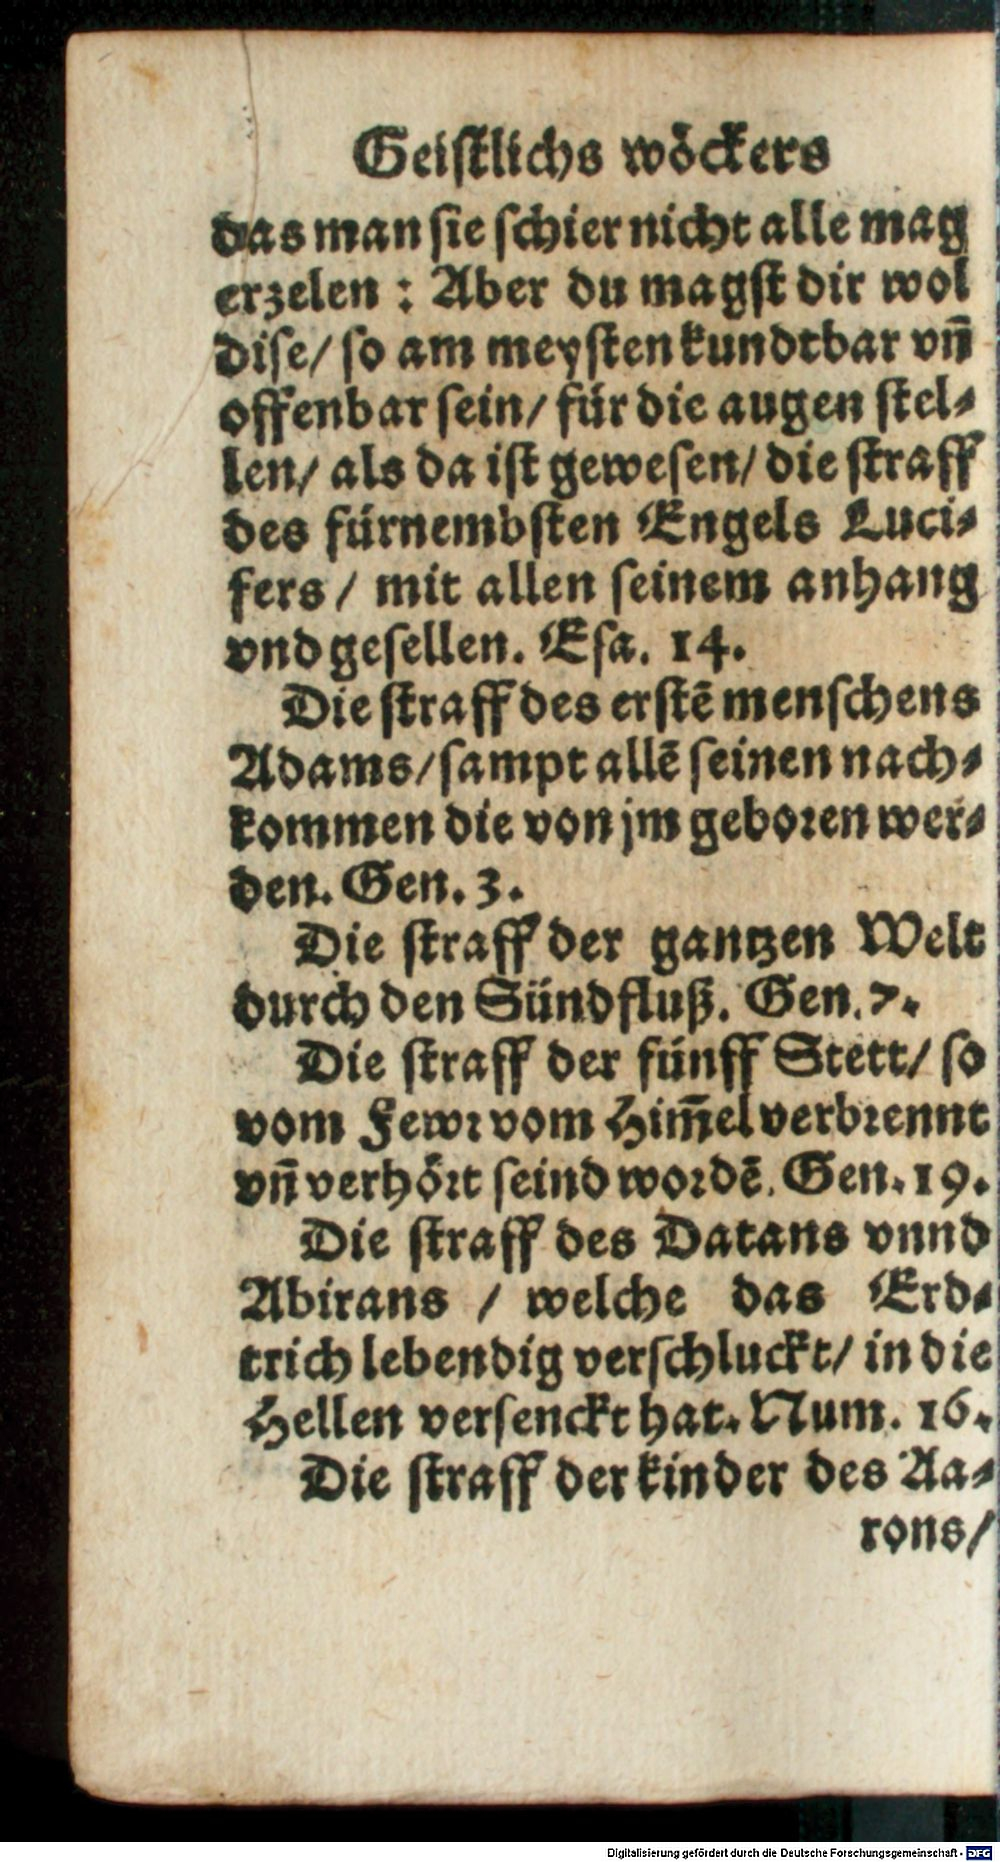 Geistlichs wöckers
das man sie schier nicht alle mag
erzelen : Aber du magst dir wol
dise/ so am meysten kundtbar vn̄
offenbar sein/ für die augen stel⸗
len/ als da ist gewesen/ die straff
des fürnembsten Engels Luci⸗
fers / mit allen seinem anhang
vnd gesellen. Esa. 14.
Die straff des erstē menschens
Adams/ sampt allē seinen nach⸗
kommen die von jm geboren wer⸗
den. Gen. 3.
Die straff der gantzen Welt
durch den Sündfluß. Gen. 7.
Die straff der fünff Stett/ so
vom Fewr vom Him̄el verbrennt
vn̄ verhört seind wordē. Gen. 19.
Die straff des Datans vnnd
Abirans / welche das Erd⸗
trich lebendig verschluckt/ in die
Hellen versenckt hat. Num. 16.
Die straff der kinder des Aa⸗
rons/
Digitalisierung gefördert durch die Deutsche Forschungsgemeinschaft - DFG